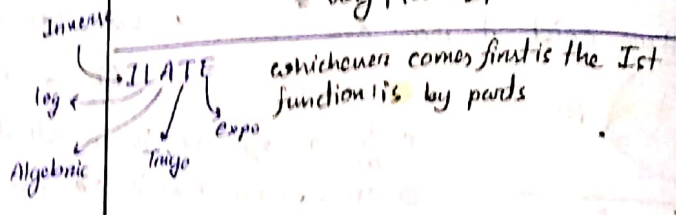 Inverse
.ILATE whichever comes first is the Ist
log function is by parts
expo
Algebraic Trigo